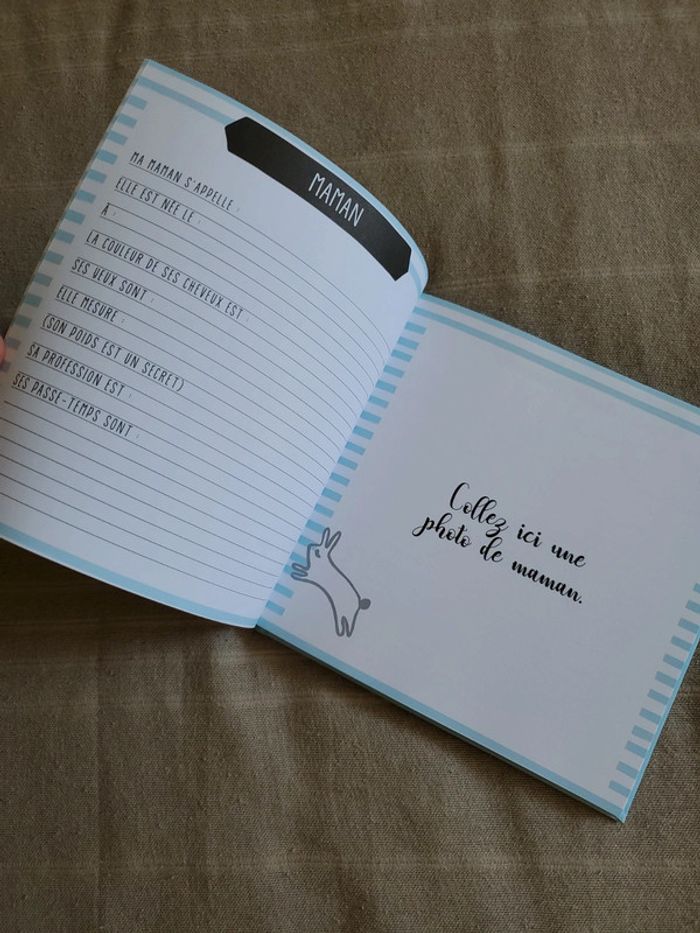 MAMAN
MA MAMAN S'APPELLE :
ELLE EST NÉE LE :
À :
LA COULEUR DE SES CHEVEUX EST :
SES YEUX SONT :
ELLE MESURE :
(SON POIDS EST UN SECRET)
SA PROFESSION EST :
SES PASSE-TEMPS SONT :
Collez ici une
photo de maman.